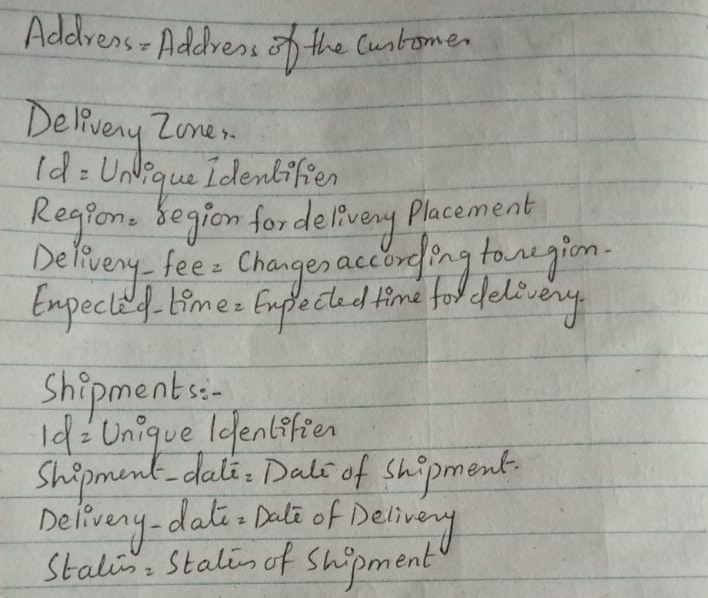 Address = Address of the Customer
Delivery Zone:-
Id = Unique Identifier
Region = region for delivery Placement
Delivery_fee = Changes according to region.
Expected_time = Expected time for delivery.
Shipments:-
Id = Unique Identifier
Shipment_date = Date of Shipment.
Delivery_date = Date of Delivery
Status = Status of Shipment